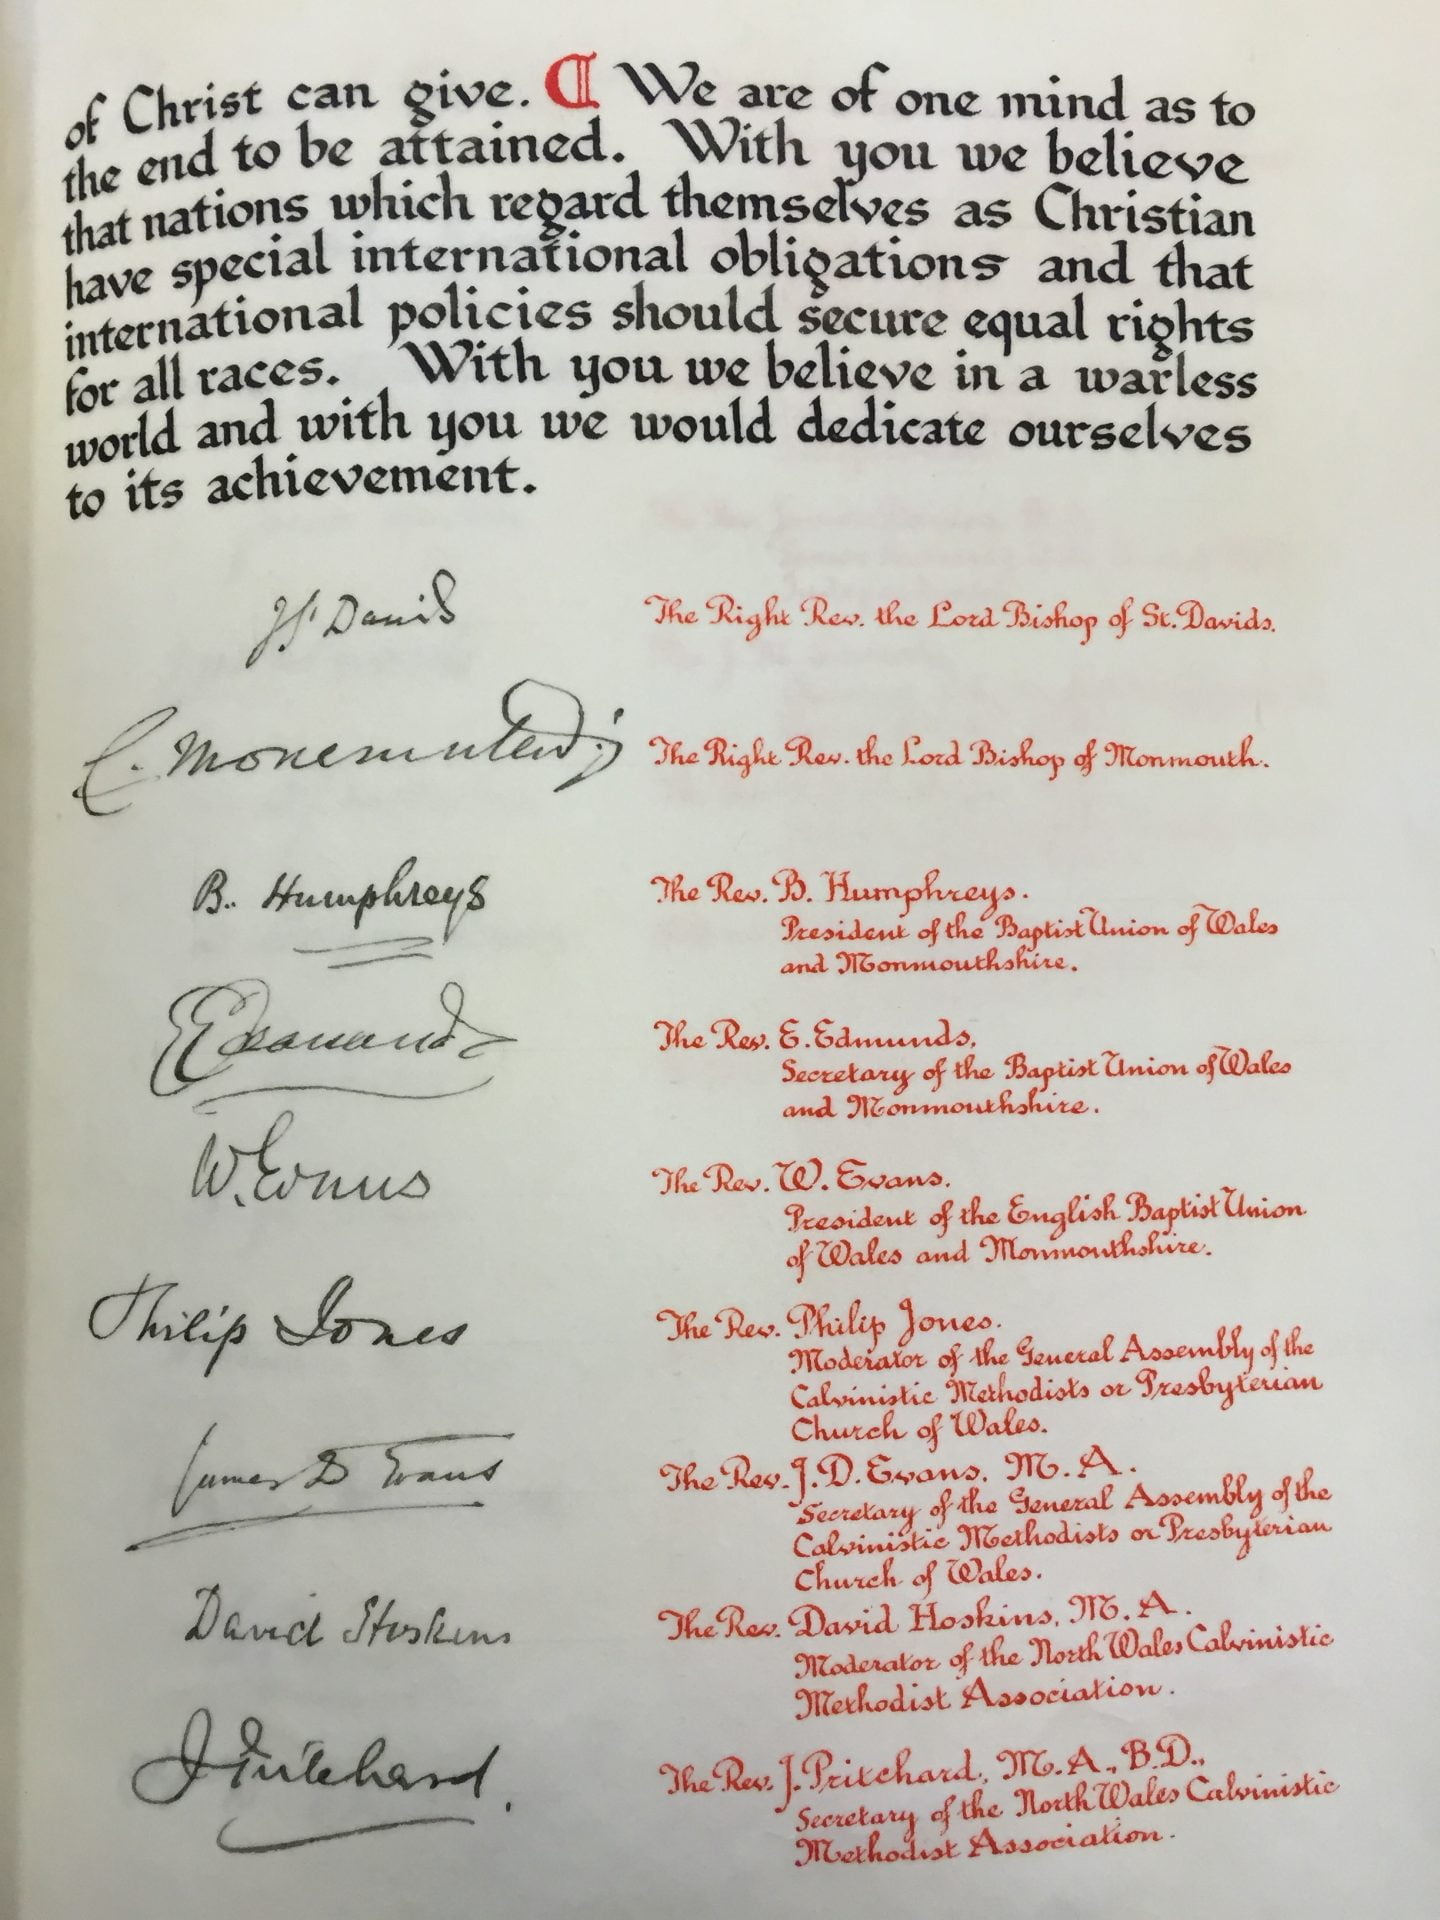 of Christ can give. ℂ We are of one mind as to
the end to be attained. With you we believe
that nations which regard themselves as Christian
have special international obligations and that
international policies should secure equal rights
for all races. With you we believe in a warless
world and with you we would dedicate ourselves
to its achievement.
The Right Rev. the Lord Bishop of St. Davids.
The Right Rev. the Lord Bishop of Monmouth.
B. Humphreys
The Rev. B. Humphreys.
President of the Baptist Union of Wales
and Monmouthshire.
The Rev. E. Edmunds,
Secretary of the Baptist Union of Wales
and Monmouthshire.
W. Evans
The Rev. W. Evans.
President of the English Baptist Union
of Wales and Monmouthshire.
Philip Jones
The Rev. Philip Jones.
Moderator of the General Assembly of the
Calvinistic Methodists or Presbyterian
Church of Wales.
James D Evans
The Rev. J. D. Evans, M. A.
Secretary of the General Assembly of the
Calvinistic Methodists or Presbyterian
Church of Wales.
David Hoskins
The Rev. David Hoskins, M. A.
Moderator of the North Wales Calvinistic
Methodist Association.
J Pritchard.
The Rev. J. Pritchard, M. A., B.D.,
Secretary of the North Wales Calvinistic
Methodist Association.